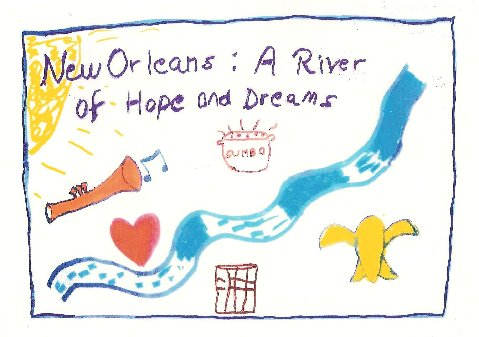 New Orleans: A River
of Hope and Dreams
GUMBO